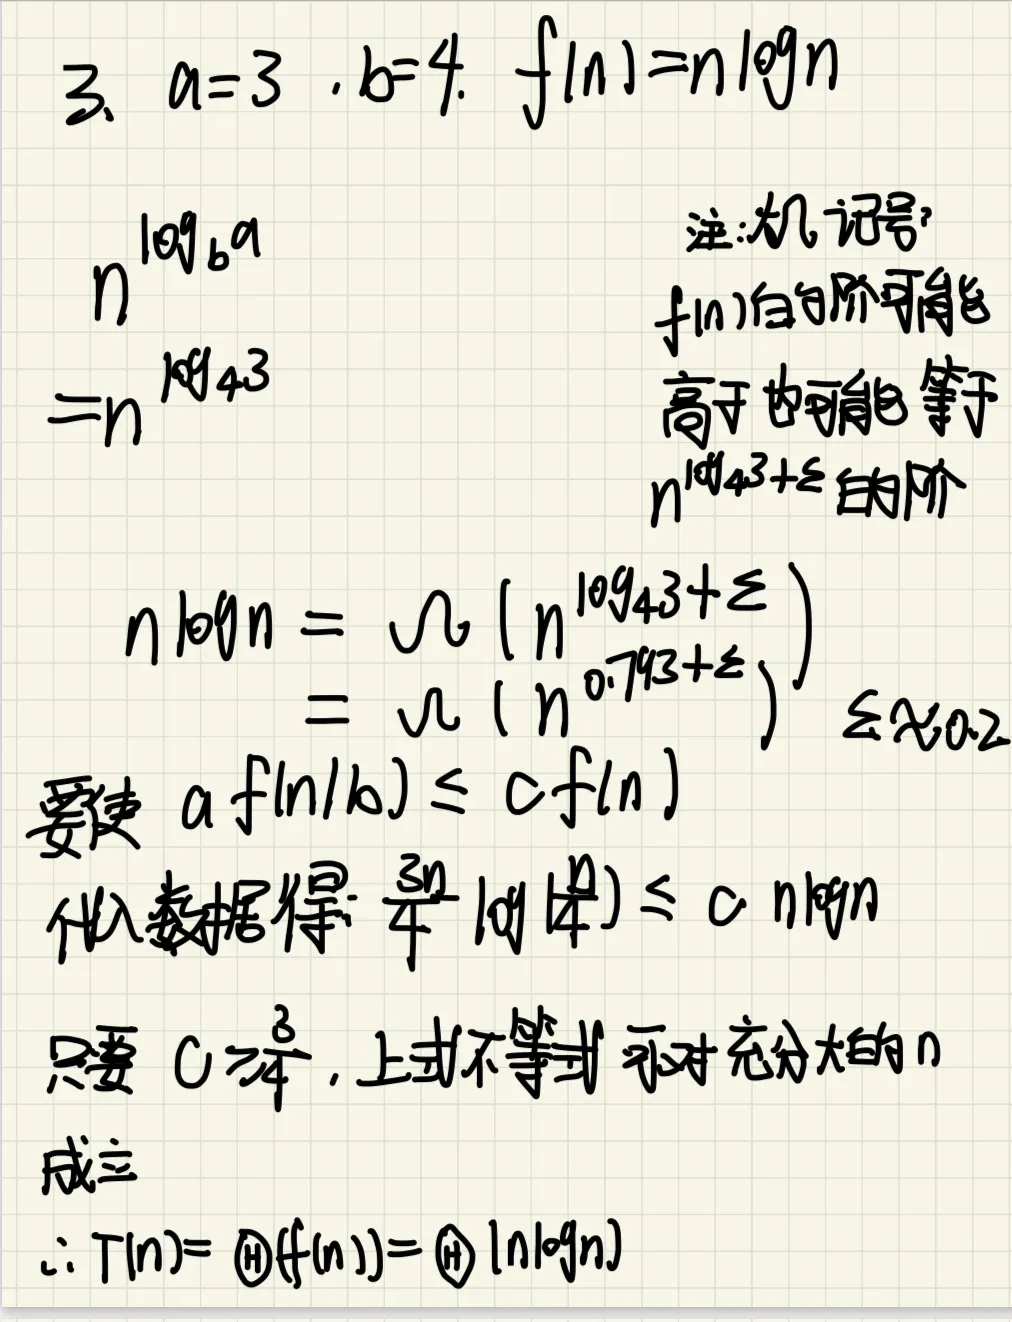 3、 a=3 , b=4. f(n)=nlogn
n^{log_b a}
=n^{log_4 3}
注:大Ω记号?
f(n)的阶可能
高于也可能等于
n^{log_4 3+ε}的阶
nlogn = Ω(n^{log_4 3+ε})
= Ω(n^{0.793+ε}) ε≈0.2
要使 a f(n/b) ≤ c f(n)
代入数据得: 3n/4 log(n/4) ≤ c nlogn
只要 C≥3/4 , 上式不等式 对充分大的n
成立
∴T(n)= Θ(f(n))= Θ(nlogn)